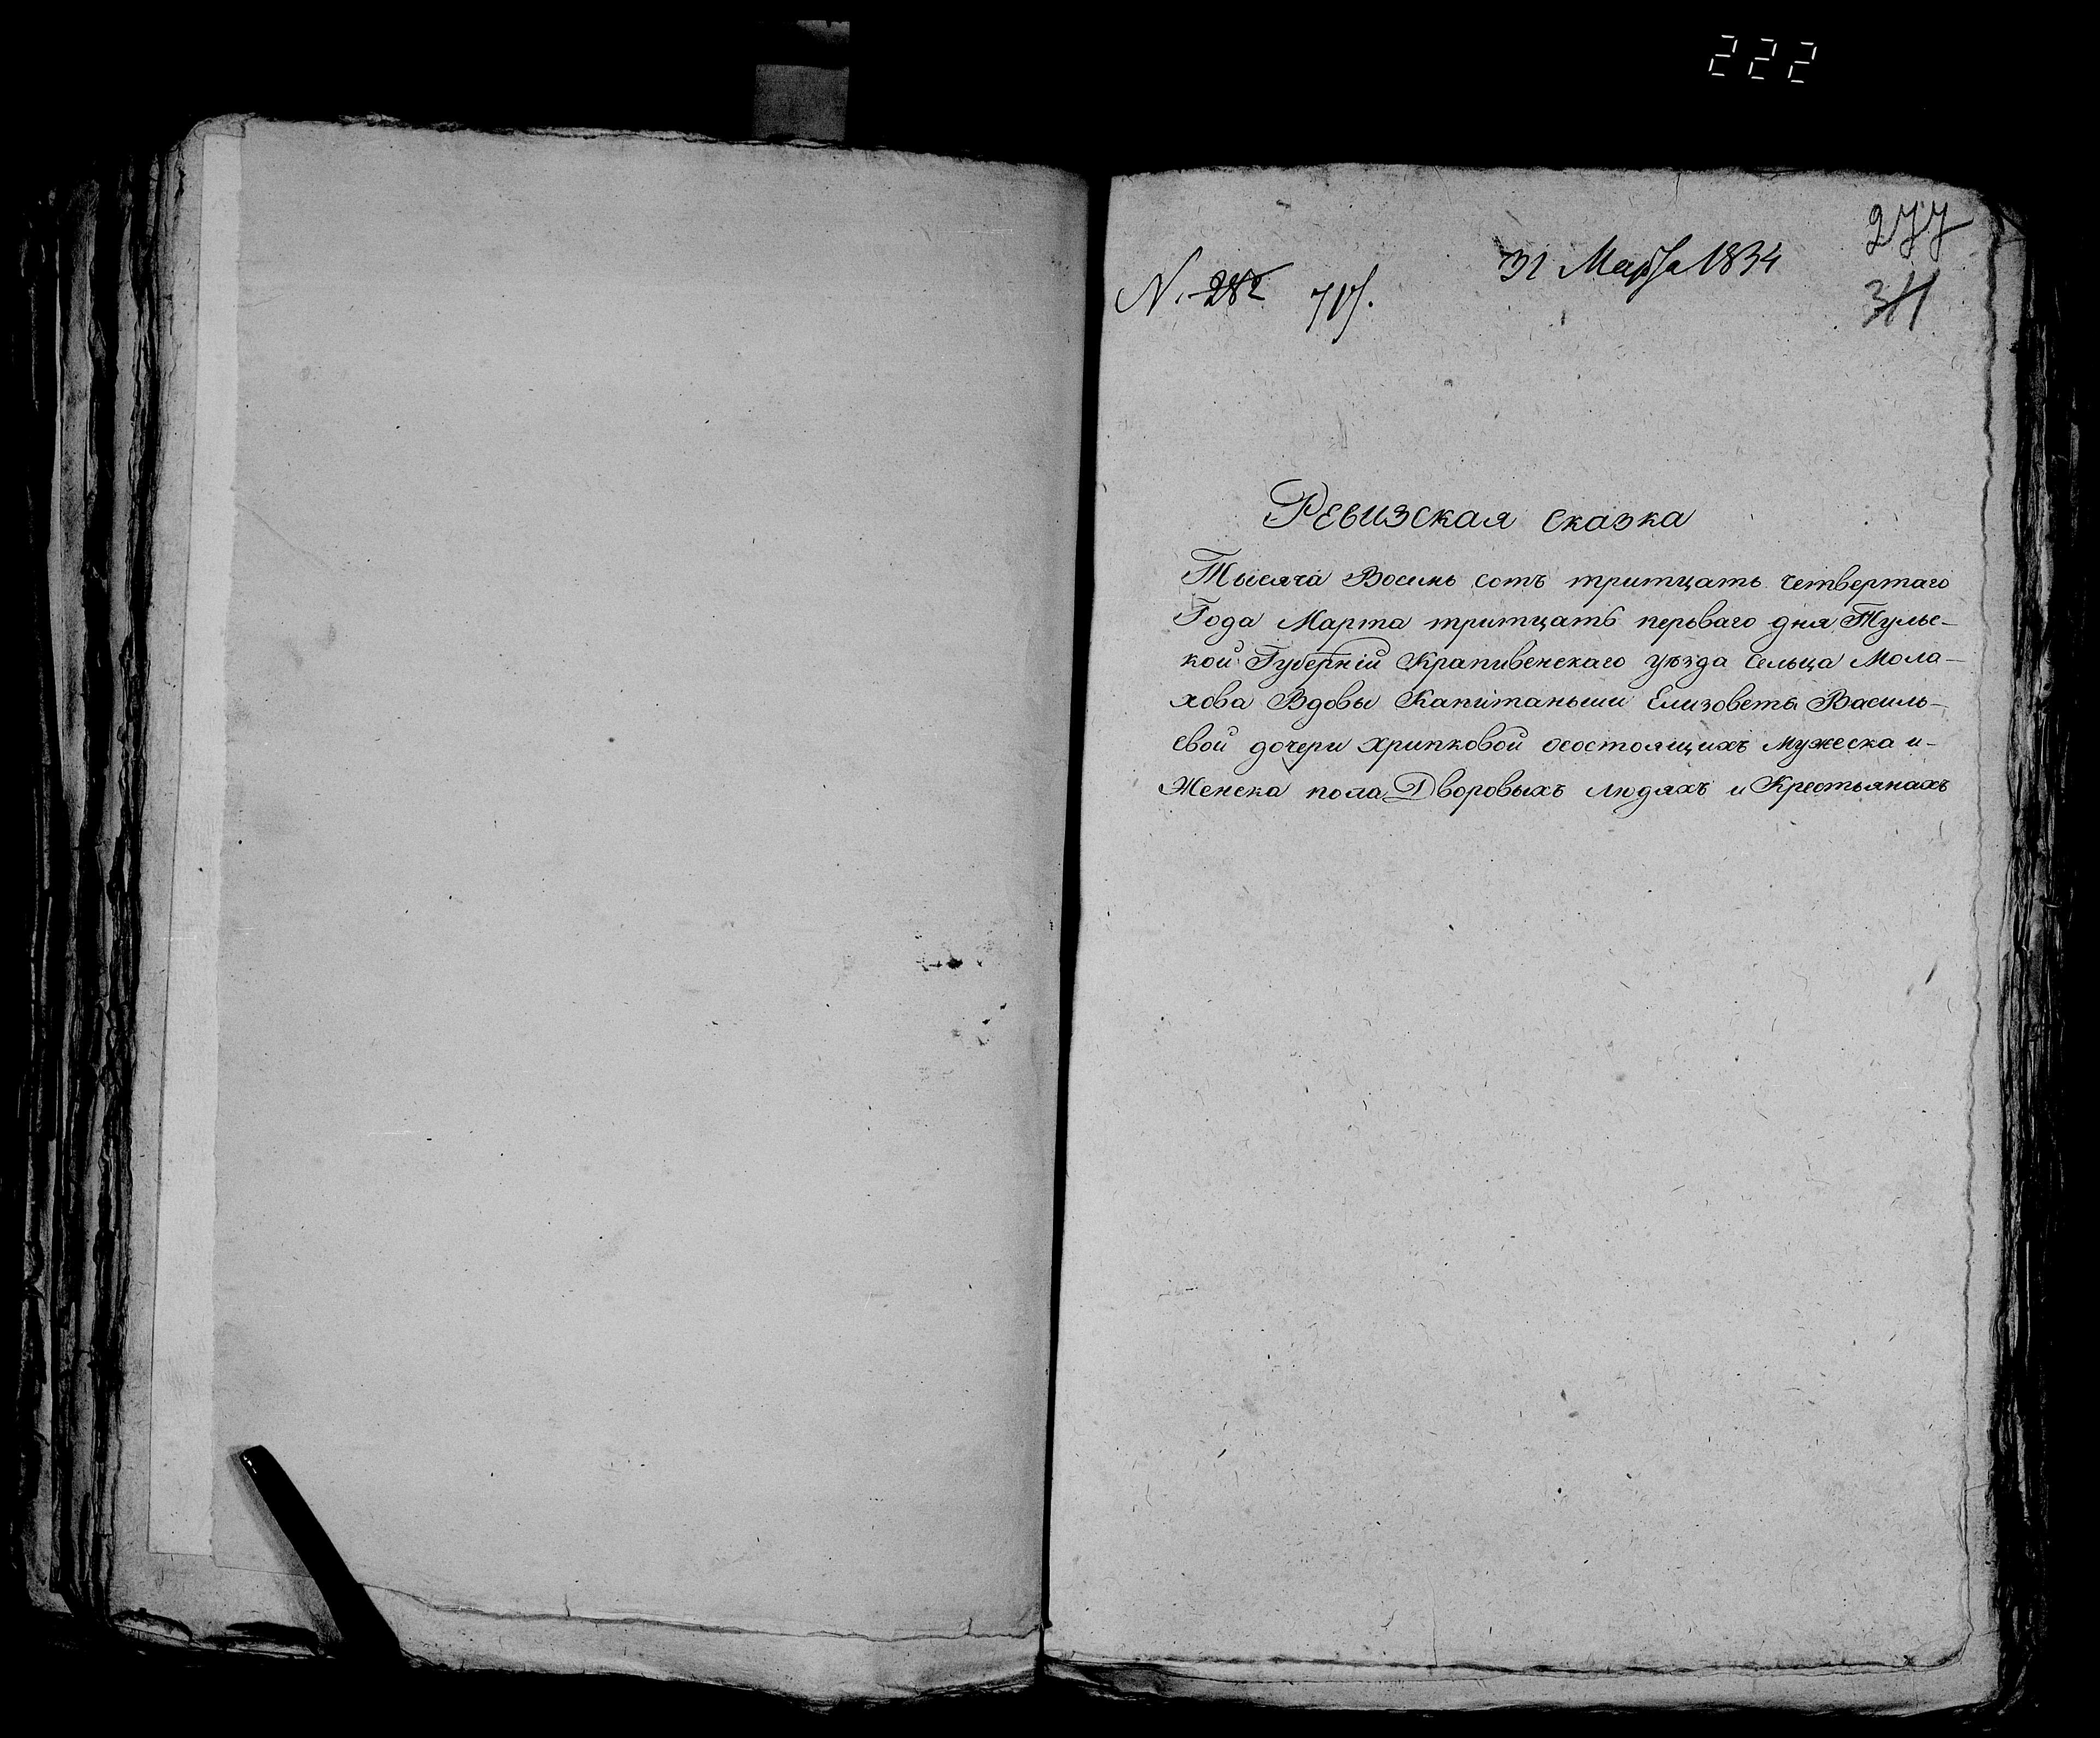 222
277
31 Марта 1834
N. 282 717.
311
Ревизская сказка
Тысяча Восимь сотъ тритцать четвертаго
Года Марта тритцать перьваго дня Тульс-
кой Губерніи Крапивенскаго уѣзда Сельца Мола-
хова Вдовы Капитаньши Елизоветы Василь-
евой дочери Хрипковой осостоящихъ мужеска и-
Женска пола Дворовыхъ людяхъ и Крестьянахъ